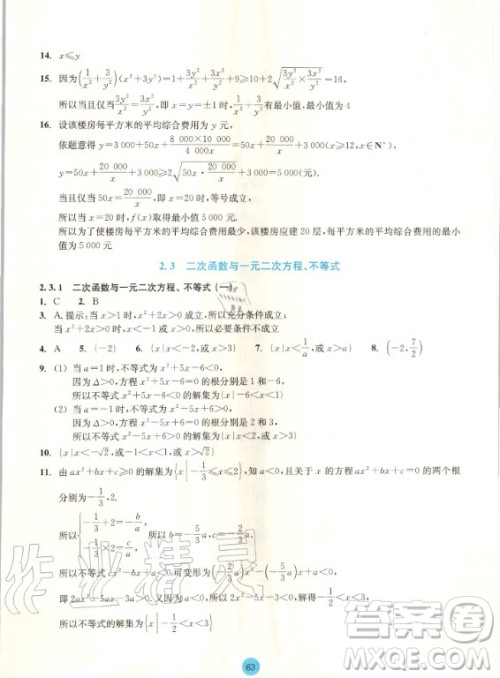 14. x≤y
15. 因为(1/x²+3/y²)(x²+3y²)=1+3y²/x²+3x²/y²+9≥10+2√(3y²/x²×3x²/y²)=16,
所以当且仅当3y²/x²=3x²/y²,即x=y=±1时,有最小值,最小值为4
16. 设该楼房每平方米的平均综合费用为y元,
依题意得y=3 000+50x+8 000×10 000/4 000x=50x+20 000/x+3 000(x≥12,x∈N*)
y=50x+20 000/x+3 000≥2√(50x·20 000/x)+3 000=5 000(元).
当且仅当50x=20 000/x,即x=20时,等号成立,
所以当x=20时,f(x)取得最小值5 000元.
所以为了使楼房每平方米的平均综合费用最少,该楼房应建20层,每平方米的平均综合费用最小值为5 000元
2.3 二次函数与一元二次方程、不等式
2.3.1 二次函数与一元二次方程、不等式(一)
1. C 2. B
3. A.提示:当x>1时,x²>1成立,所以充分条件成立.
当x²>1时,x<-1或x>1,所以必要条件不成立
4. A 5. {-2} 6. {x|x<-2,或x>3} 7. {x|x<1/a,或x>a} 8. (-2,7/2)
9. (1) 当a=1时,不等式x²+5x-6>0,
因为Δ>0,方程x²+5x-6=0的根分别是1和-6,
所以不等式x²+5x-6>0的解集为{x|x<-6,或x>1}
(2) 当a=-1时,不等式x²-5x+6>0,
因为Δ>0,方程x²-5x+6=0的根分别是2和3,
所以不等式x²-5x+6>0的解集为{x|x<2,或x>3}
10. {x|-√2<x<-1,或1<x<√2}
11. 由ax²+bx+c≥0的解集为{x|-1/3≤x≤2},知a<0,且关于x的方程ax²+bx+c=0的两个根
分别为-1/3,2,
所以{-1/3+2=-b/a, -1/3×2=c/a}所以b=-5/3a,c=-2/3a.
所以不等式cx²-bx+a<0,可变形为(-2/3a)x²-(-5/3a)x+a<0,
即2ax²-5ax-3a>0.又因为a<0,所以2x²-5x-3<0,
所以不等式的解集为{x|-1/2<x<3}
63
作业精灵
答案圈
MXQE.COM